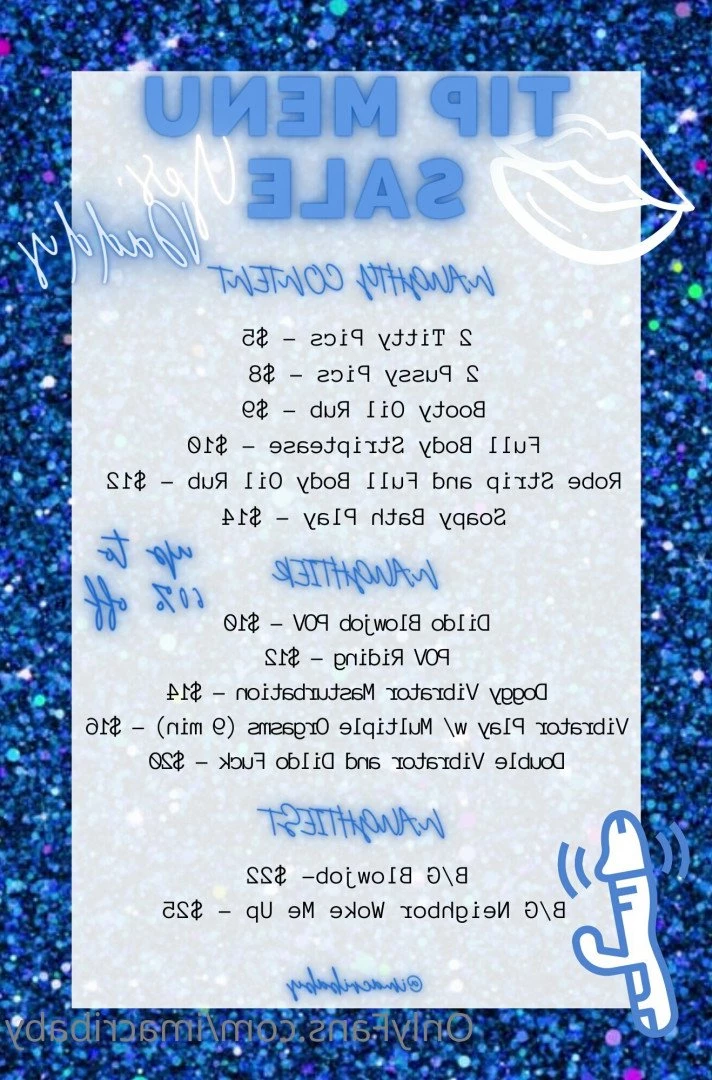 TIP MENU
SALE
Yes,
Daddy
NAUGHTY CONTENT
2 Titty Pics – $5
2 Pussy Pics – $8
Booty Oil Rub – $9
Full Body Striptease – $10
Robe Strip and Full Body Oil Rub – $12
Soapy Bath Play – $14
up to
60% off
NAUGHTIER
Dildo Blowjob POV – $10
POV Riding – $12
Doggy Vibrator Masturbation – $14
Vibrator Play w/ Multiple Orgasms (9 min) – $16
Double Vibrator and Dildo Fuck – $20
NAUGHTIEST
B/G Blowjob– $22
B/G Neighbor Woke Me Up – $25
@imacribaby
OnlyFans.com/imacribaby